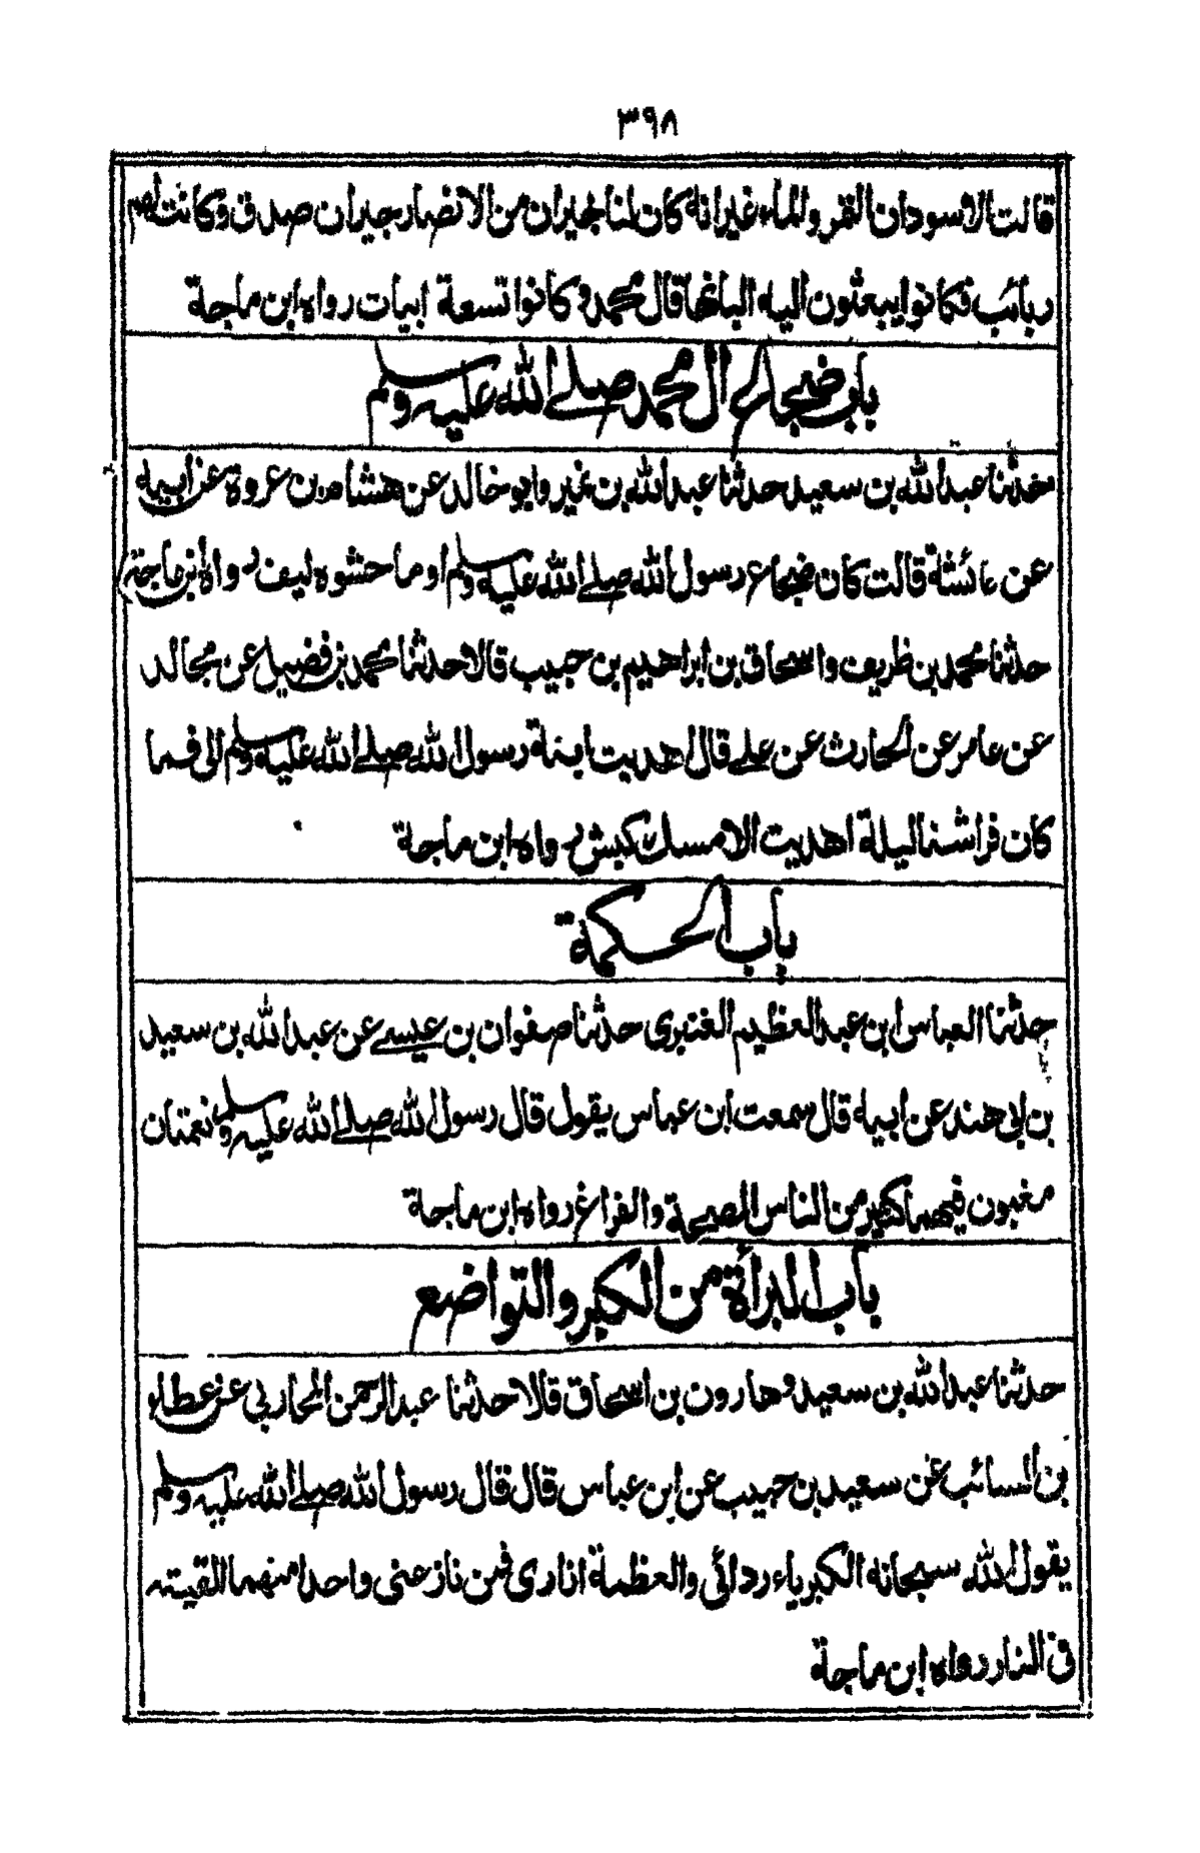 ٣٩٨
قالت الاسودان التمر والماء غير انه كان لنا جيران من الانصار جيران صدق وكانت لهم
ربائب فكانوا يبعثون اليه البانها قال محمد وكانوا تسعة ابيات رواه ابن ماجة
باب ضجاع ال محمد صلے الله عليه وسلم
حدثنا عبد الله بن سعيد حدثنا عبد الله بن نمير وابو خالد عن هشام بن عروة عن ابيه
عن عائشة قالت كان ضجاع رسول الله صلے الله عليه وسلم اوما حشوه ليف رواه ابن ماجة
حدثنا محمد بن طريف واسحاق بن ابراهيم بن حبيب قالا حدثنا محمد بن فضيل عن مجالد
عن عامر عن الحارث عن علے قال اهديت ابنة رسول الله صلے الله عليه وسلم الى فما
كان فراشنا ليلة اهديت الا مسك كبش رواه ابن ماجة
باب الحكمة
حدثنا العباس ابن عبد العظيم العنبرى حدثنا صفوان بن عيسے عن عبد الله بن سعيد
بن ابى هند عن ابيه قال سمعت ابن عباس يقول قال رسول الله صلے الله عليه وسلم نعمتان
مغبون فيهما كثير من الناس الصحة والفراغ رواه ابن ماجة
باب البرأة من الكبر والتواضع
حدثنا عبد الله بن سعيد وهارون بن اسحاق قالا حدثنا عبد الرحمن المحاربي عن عطاء
بن السائب عن سعيد بن حبيب عن ابن عباس قال قال رسول الله صلے الله عليه وسلم
يقول الله سبحانه الكبرياء ردائى والعظمة ازارى فمن نازعنى واحدا منهما القيته
فى النار رواه ابن ماجة